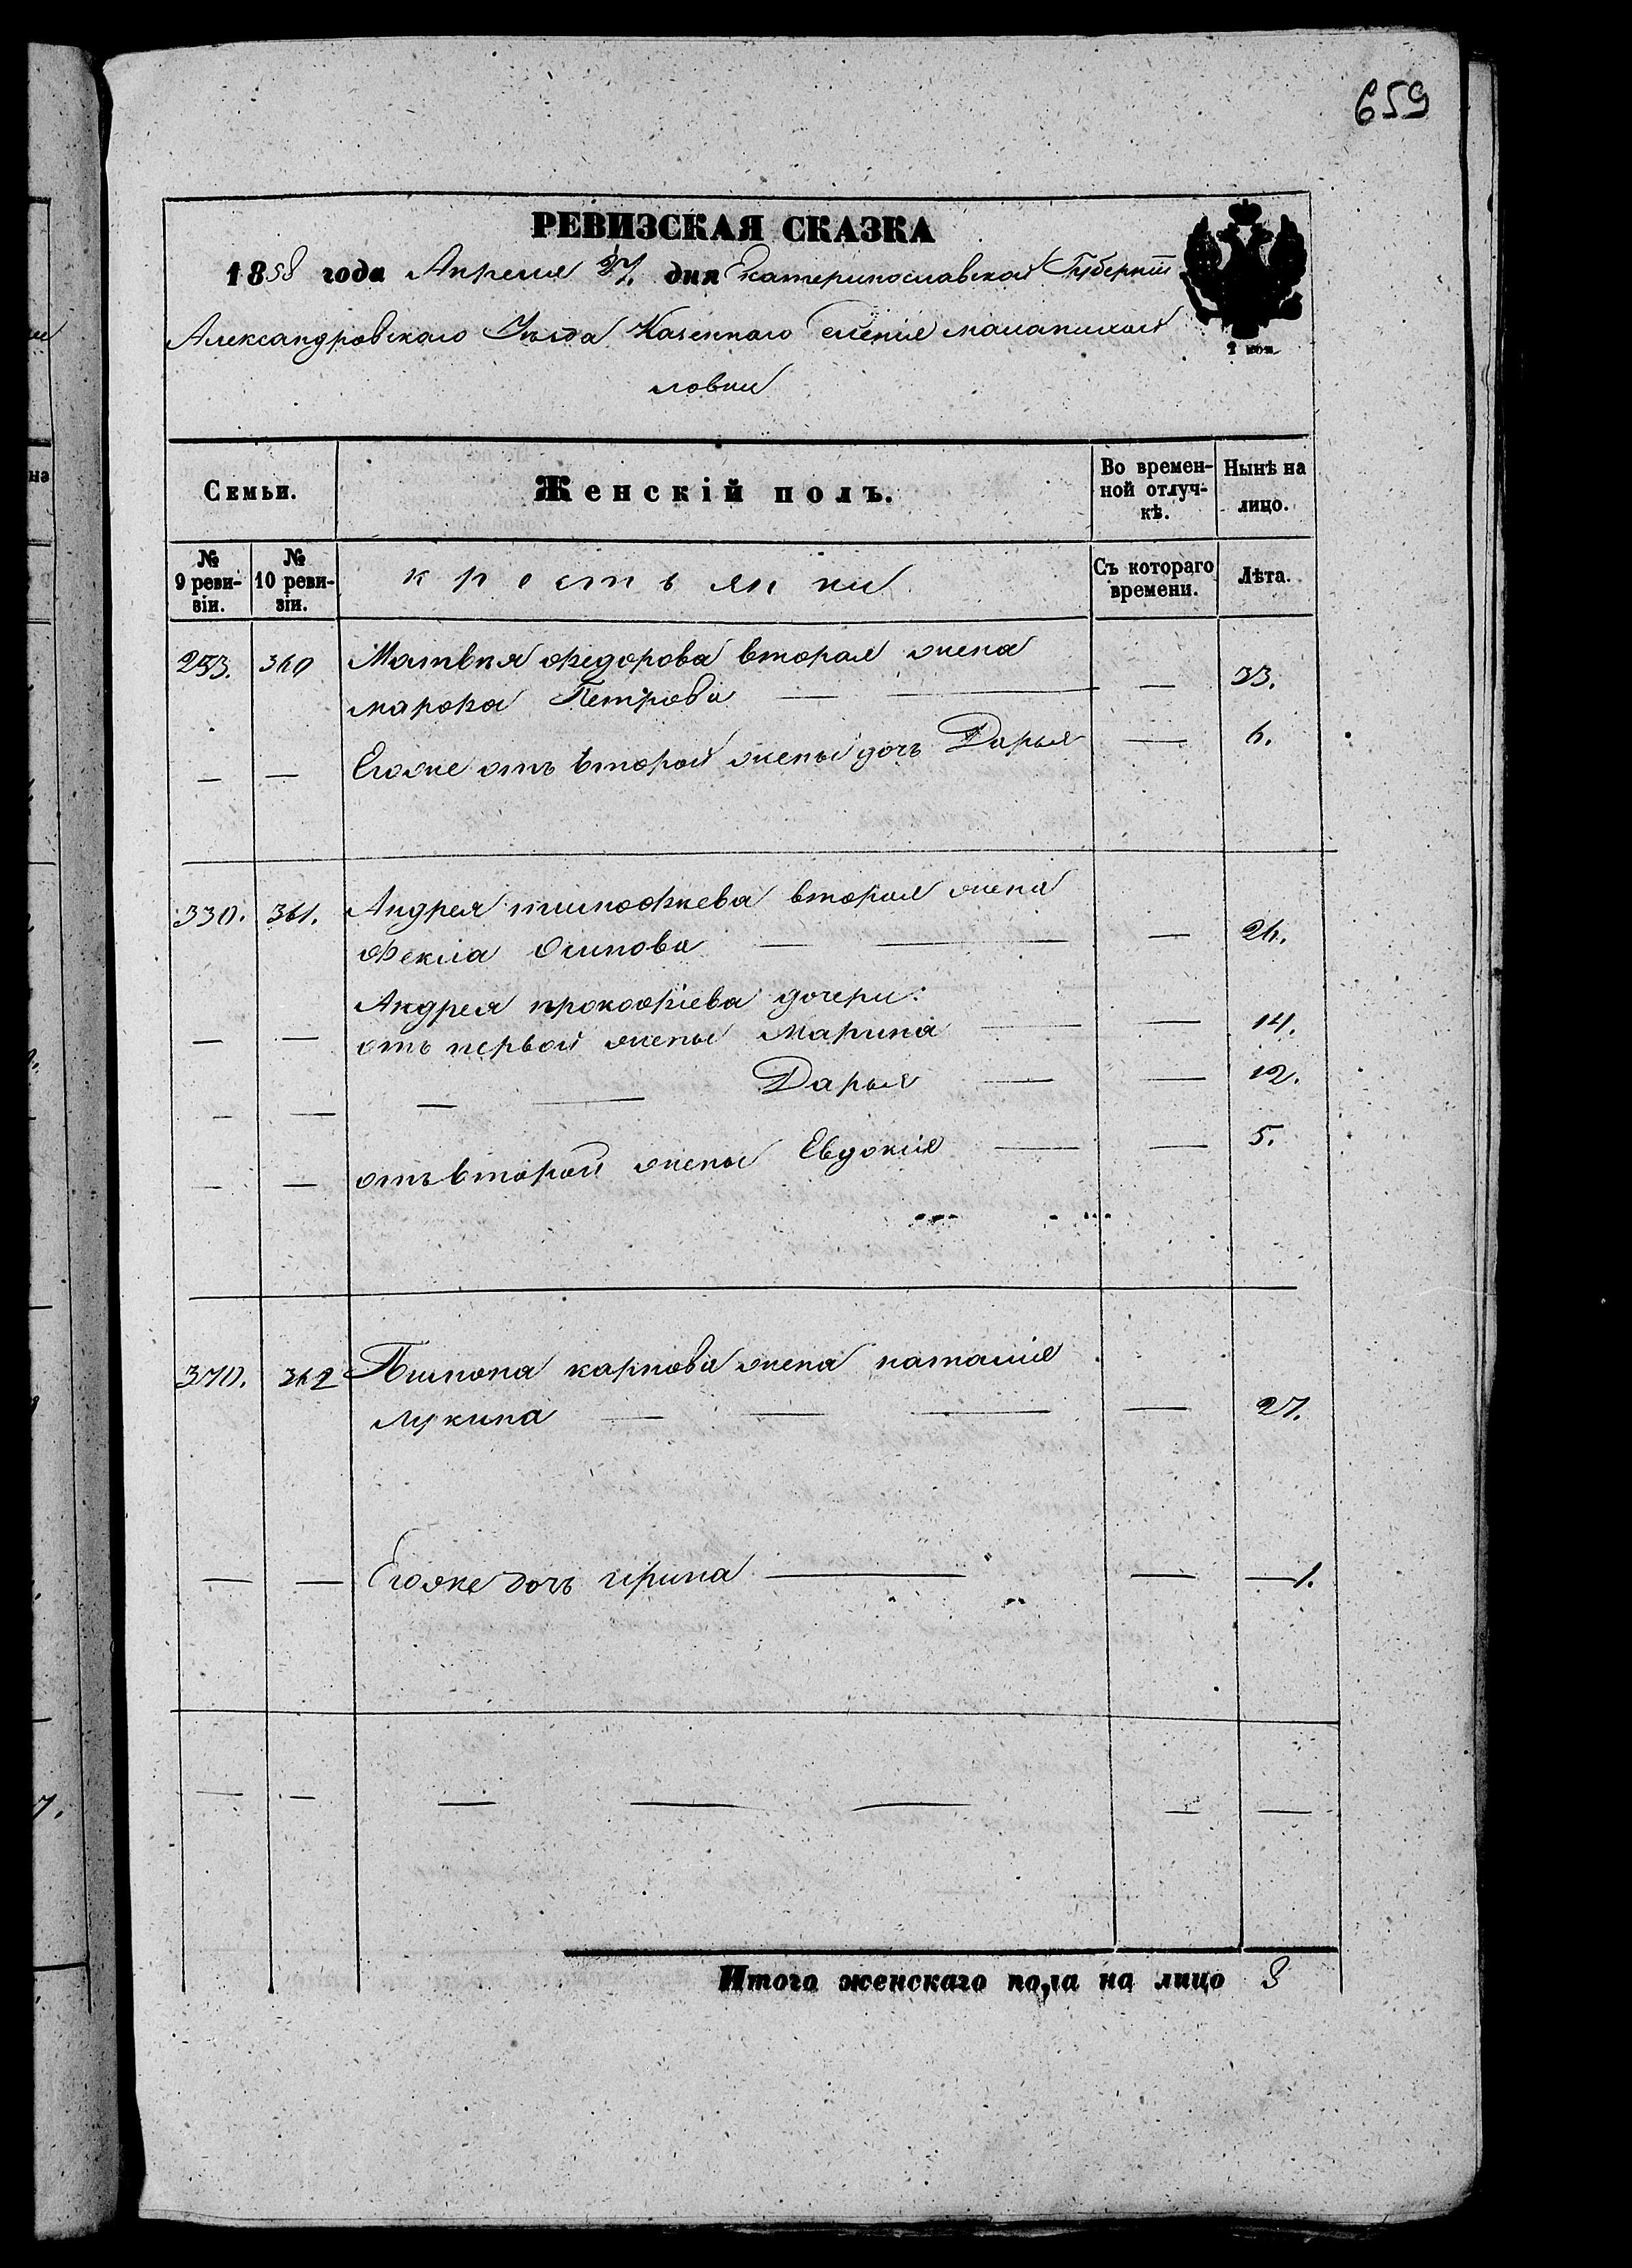 659
РЕВИЗСКАЯ СКАЗКА
1858 года Апреля 27. дня Екатеринославской Губерніи
Александровскаго Уѣзда Казеннаго Селенія
ловки
2 коп.
Семьи. Женскій полъ. Во времен-ной отлуч-кѣ. Нынѣ на лицо.
№ 9 реви-зіи. № 10 реви-зіи. крестьянки Съ котораго времени. Лѣта.
253. 360 Матвѣя Федорова вторая жена
марфа Петрова — — — 33.
— — Егоже отъ второй жены дочь Дарья — 6.
330. 361. Андрея вторая жена
Фекла Осипова — — — 26.
Андрея прокофіева дочери:
— — отъ первой жены Марина — — 14.
— — — — Дарья — — 12.
— — отъ второй жены Евдокія — — 5.
370. 362 карпова жена наталія
Лукина — — — — 27.
— — Егоже дочь ирина — — — 1.
— — — — — — —
Итого женскаго пола на лицо 8